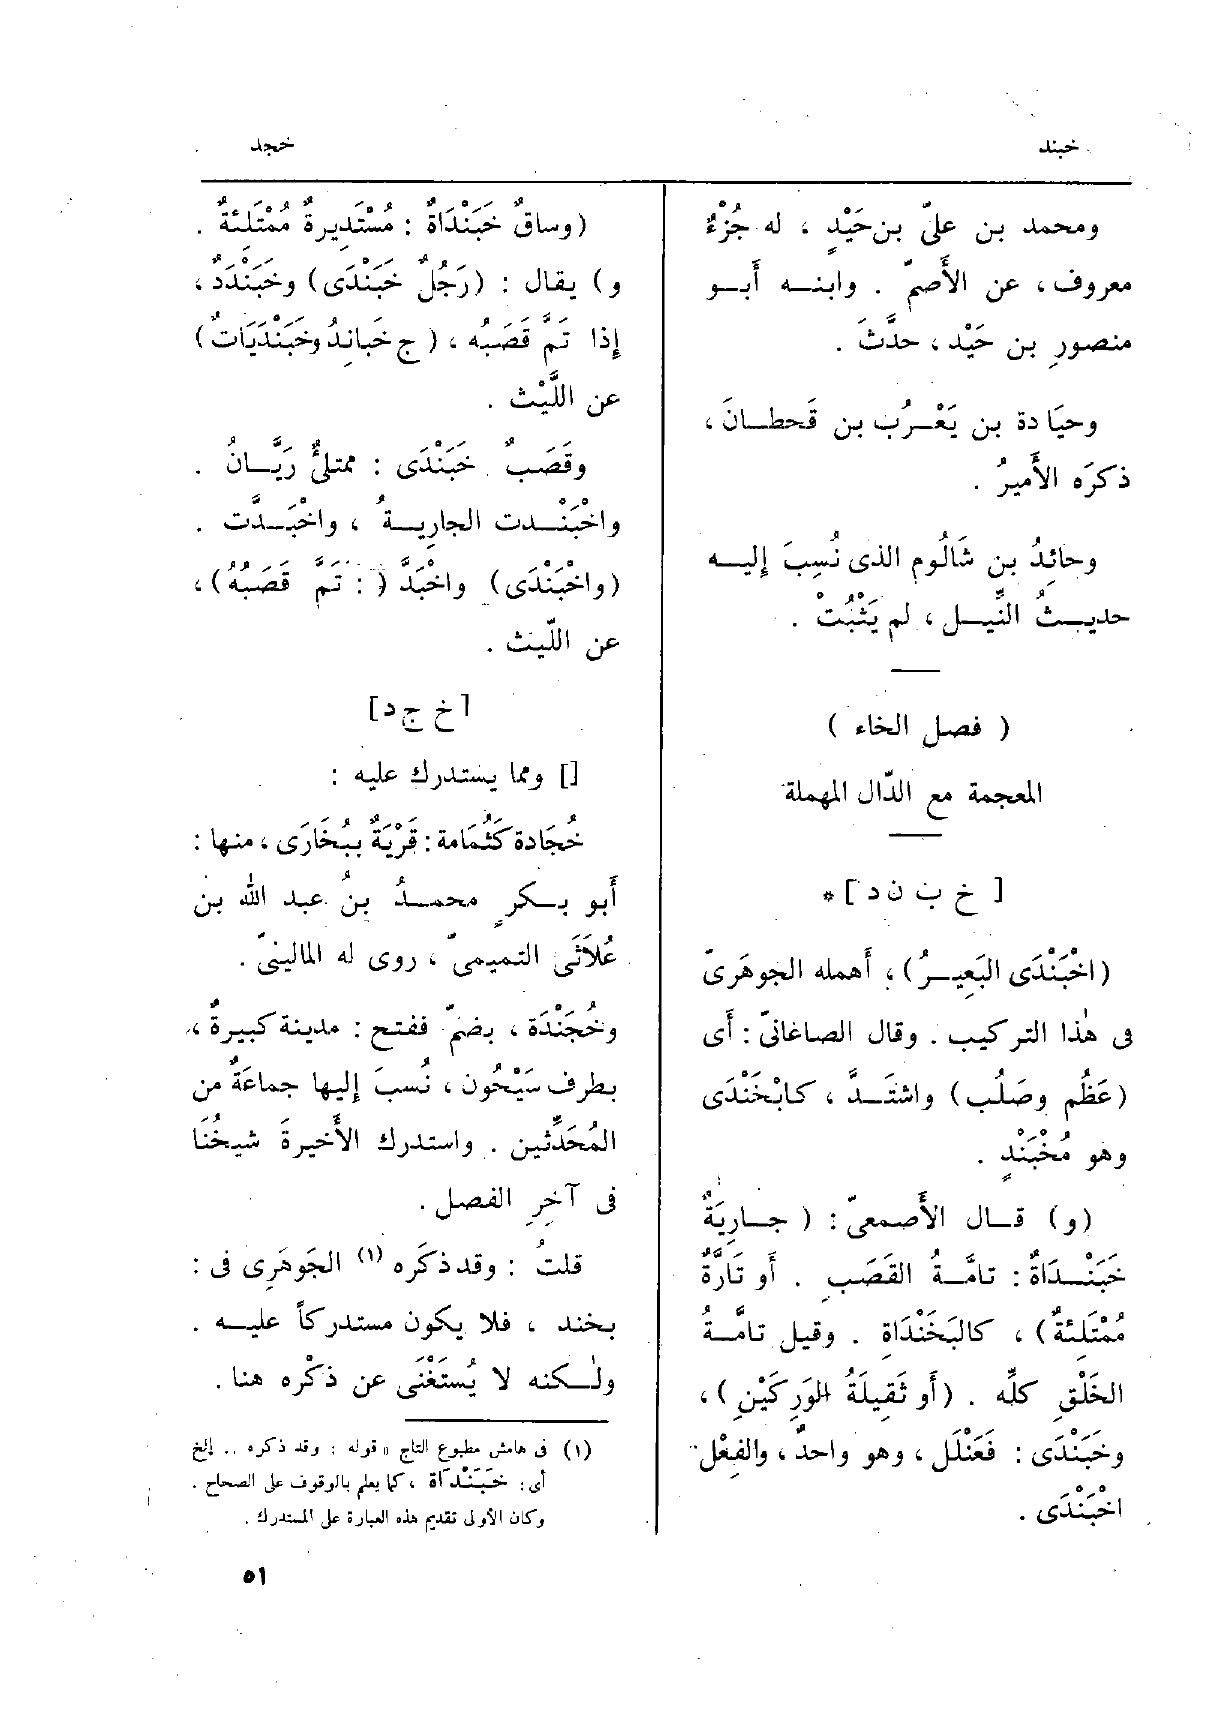 خبند
خجد
ومحمد بن علىّ بن حَيْدٍ ، له جُزْءٌ
معروف ، عن الأَصمّ . وابنــه أَبــو
منصورِ بن حَيْد ، حدَّثَ .
وحيَادة بن يَعْــرُب بن قَحطــانَ ،
ذكرَه الأَميرُ .
وحائِدُ بن شَالُوم الذى نُسِبَ إِليــه
حديــثُ النِّيــل ، لم يَثْبُتْ .
( فصل الخاء )
المعجمة مع الدّال المهملة
[ خ ب ن د ] *
(اخْبَنْدَى البَعِيــرُ) ، أَهمله الجوهَرىّ
فى هٰذا التركيب . وقال الصاغانىّ : أَى
(عَظُم وصَلُب) واشتَــدَّ ، كابْخَنْدَى
وهو مُخْبَنْدٍ .
(و) قــال الأَصمعىّ : ( جــارِيَةٌ
خَبَنْــدَاةٌ : تامَّــةُ القَصَبِ . أَو تَارَّةٌ
مُمْتَلِئةٌ) ، كالبَخَنْدَاةِ . وقيل تامَّــةُ
الخَلْقِ كلِّه . (أَو ثَقِيلَةُ الوَرِكَيْنِ ) ،
وخَبَنْدَى : فَعَنْلَل ، وهو واحدٌ ، والفِعْل
اخبَنْدَى .
(وساقٌ خَبَنْدَاةٌ : مُسْتَدِيرةٌ مُمْتَلئةٌ .
و) يقال : (رَجُلٌ خَبَنْدَى) وخَبَنْدَدٌ ،
إِذا تَمَّ قَصَبُه ، ( ج خَبانِدُ وخَبَنْدَيَاتٌ)
عن اللَّيْث .
وقَصَبٌ خَبَنْدَى : ممتلِئٌ رَيَّــانُ .
واخْبَنْــدت الجاريــةُ ، واخْبَــدَّت .
(واخْبَنْدَى) واخْبَدَّ ( : تَمَّ قَصَبُهُ) ،
عن اللّيث .
[خ ج د]
[] ومما يستدرك عليه :
خُجَادة كَثُمَامة : قَرْيَةٌ ببُخَارَى ، منها :
أَبو بــكرٍ محمــدُ بنُ عبد الله بن
عُلَاثَى التميمىّ ، روى له المالينىّ .
وخُجَنْدَة ، بضمّ ففتح : مدينة كبيرةٌ ،
بطرف سَيْحُون ، نُسبَ إِليها جماعَةٌ من
المُحَدِّثين . واستدرك الأَخيرةَ شيخُنَا
فى آخِرِ الفصل .
قلتُ : وقد ذكَره (١) الجَوهَرِى فى :
بخند ، فلا يكون مستدركاً عليــه .
ولٰــكنه لا يُستَغْنَى عن ذكْره هنا .
(١) فى هامش مطبوع التاج « قوله : وقد ذكره .. إلخ
أى : خَبَنْدَاة ، كما يعلم بالوقوف على الصحاح .
وكان الأولى تقديم هذه العبارة على المستدرك .
٥١